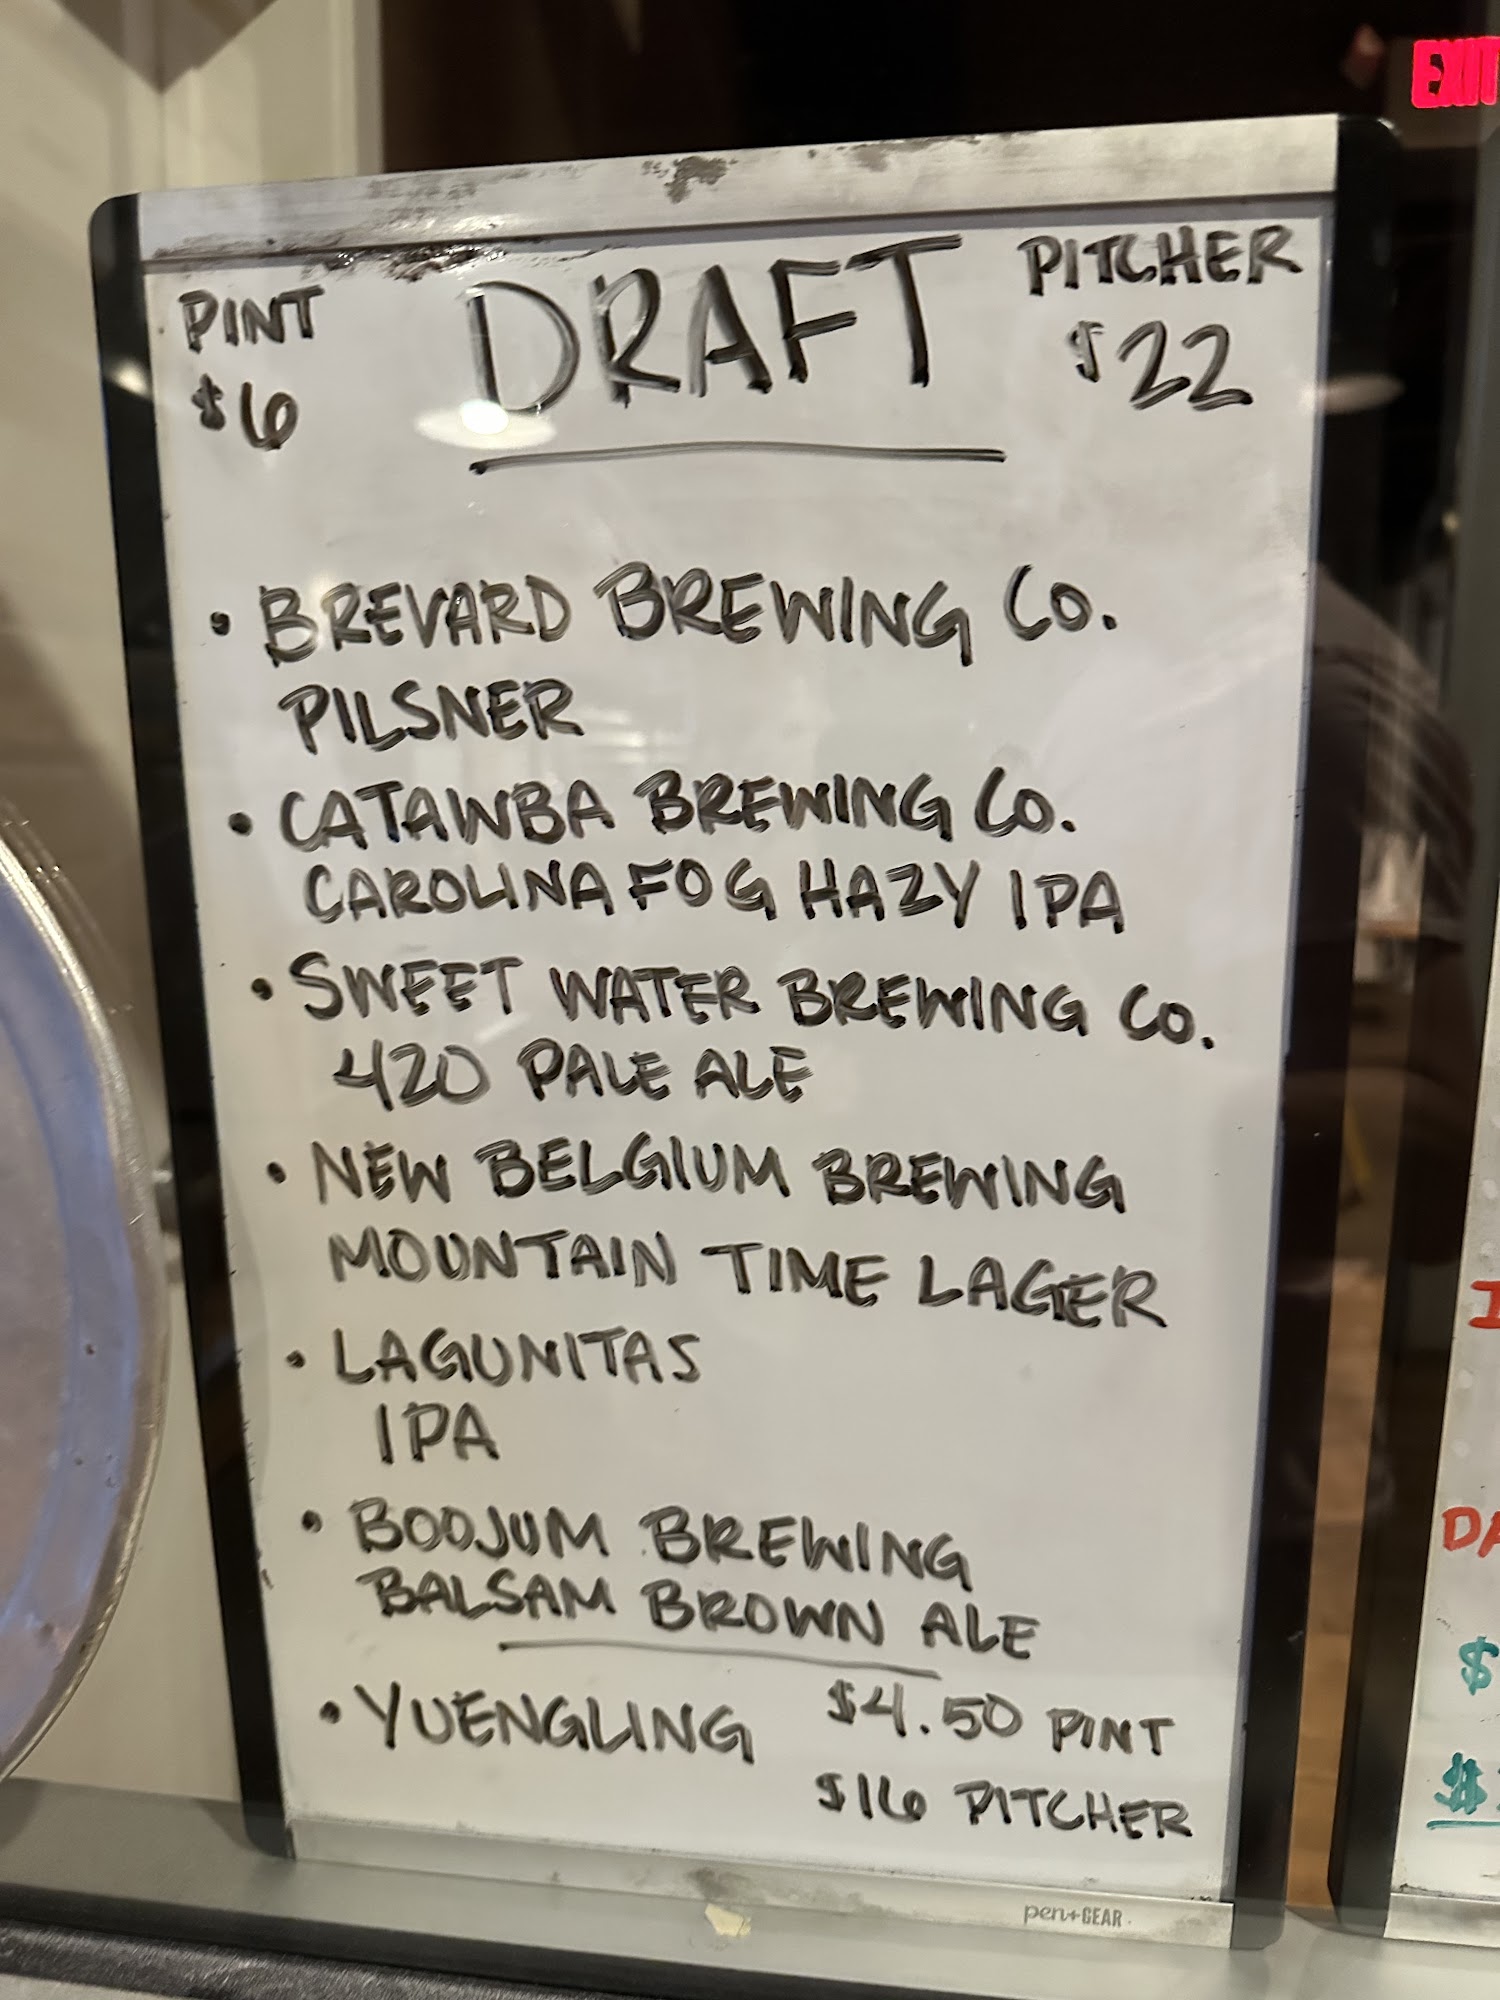 EXIT
PINT DRAFT PITCHER
$6 $22
• BREVARD BREWING CO.
PILSNER
• CATAWBA BREWING CO.
CAROLINA FOG HAZY IPA
• SWEET WATER BREWING CO.
420 PALE ALE
• NEW BELGIUM BREWING
MOUNTAIN TIME LAGER
• LAGUNITAS
IPA
• BOOJUM BREWING
BALSAM BROWN ALE
• YUENGLING $4.50 PINT
$16 PITCHER
pen+GEAR